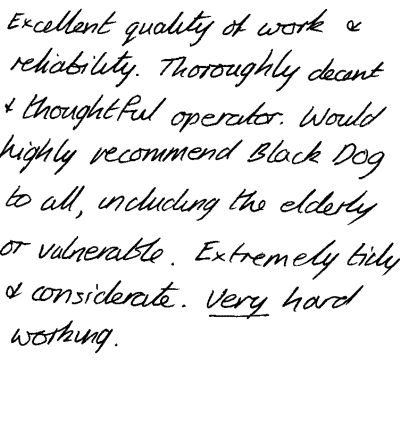 Excellent quality of work &
reliability. Thoroughly decent
& thoughtful operator. Would
highly recommend Black Dog
to all, including the elderly
or vulnerable. Extremely tidy
& considerate. Very hard
working.